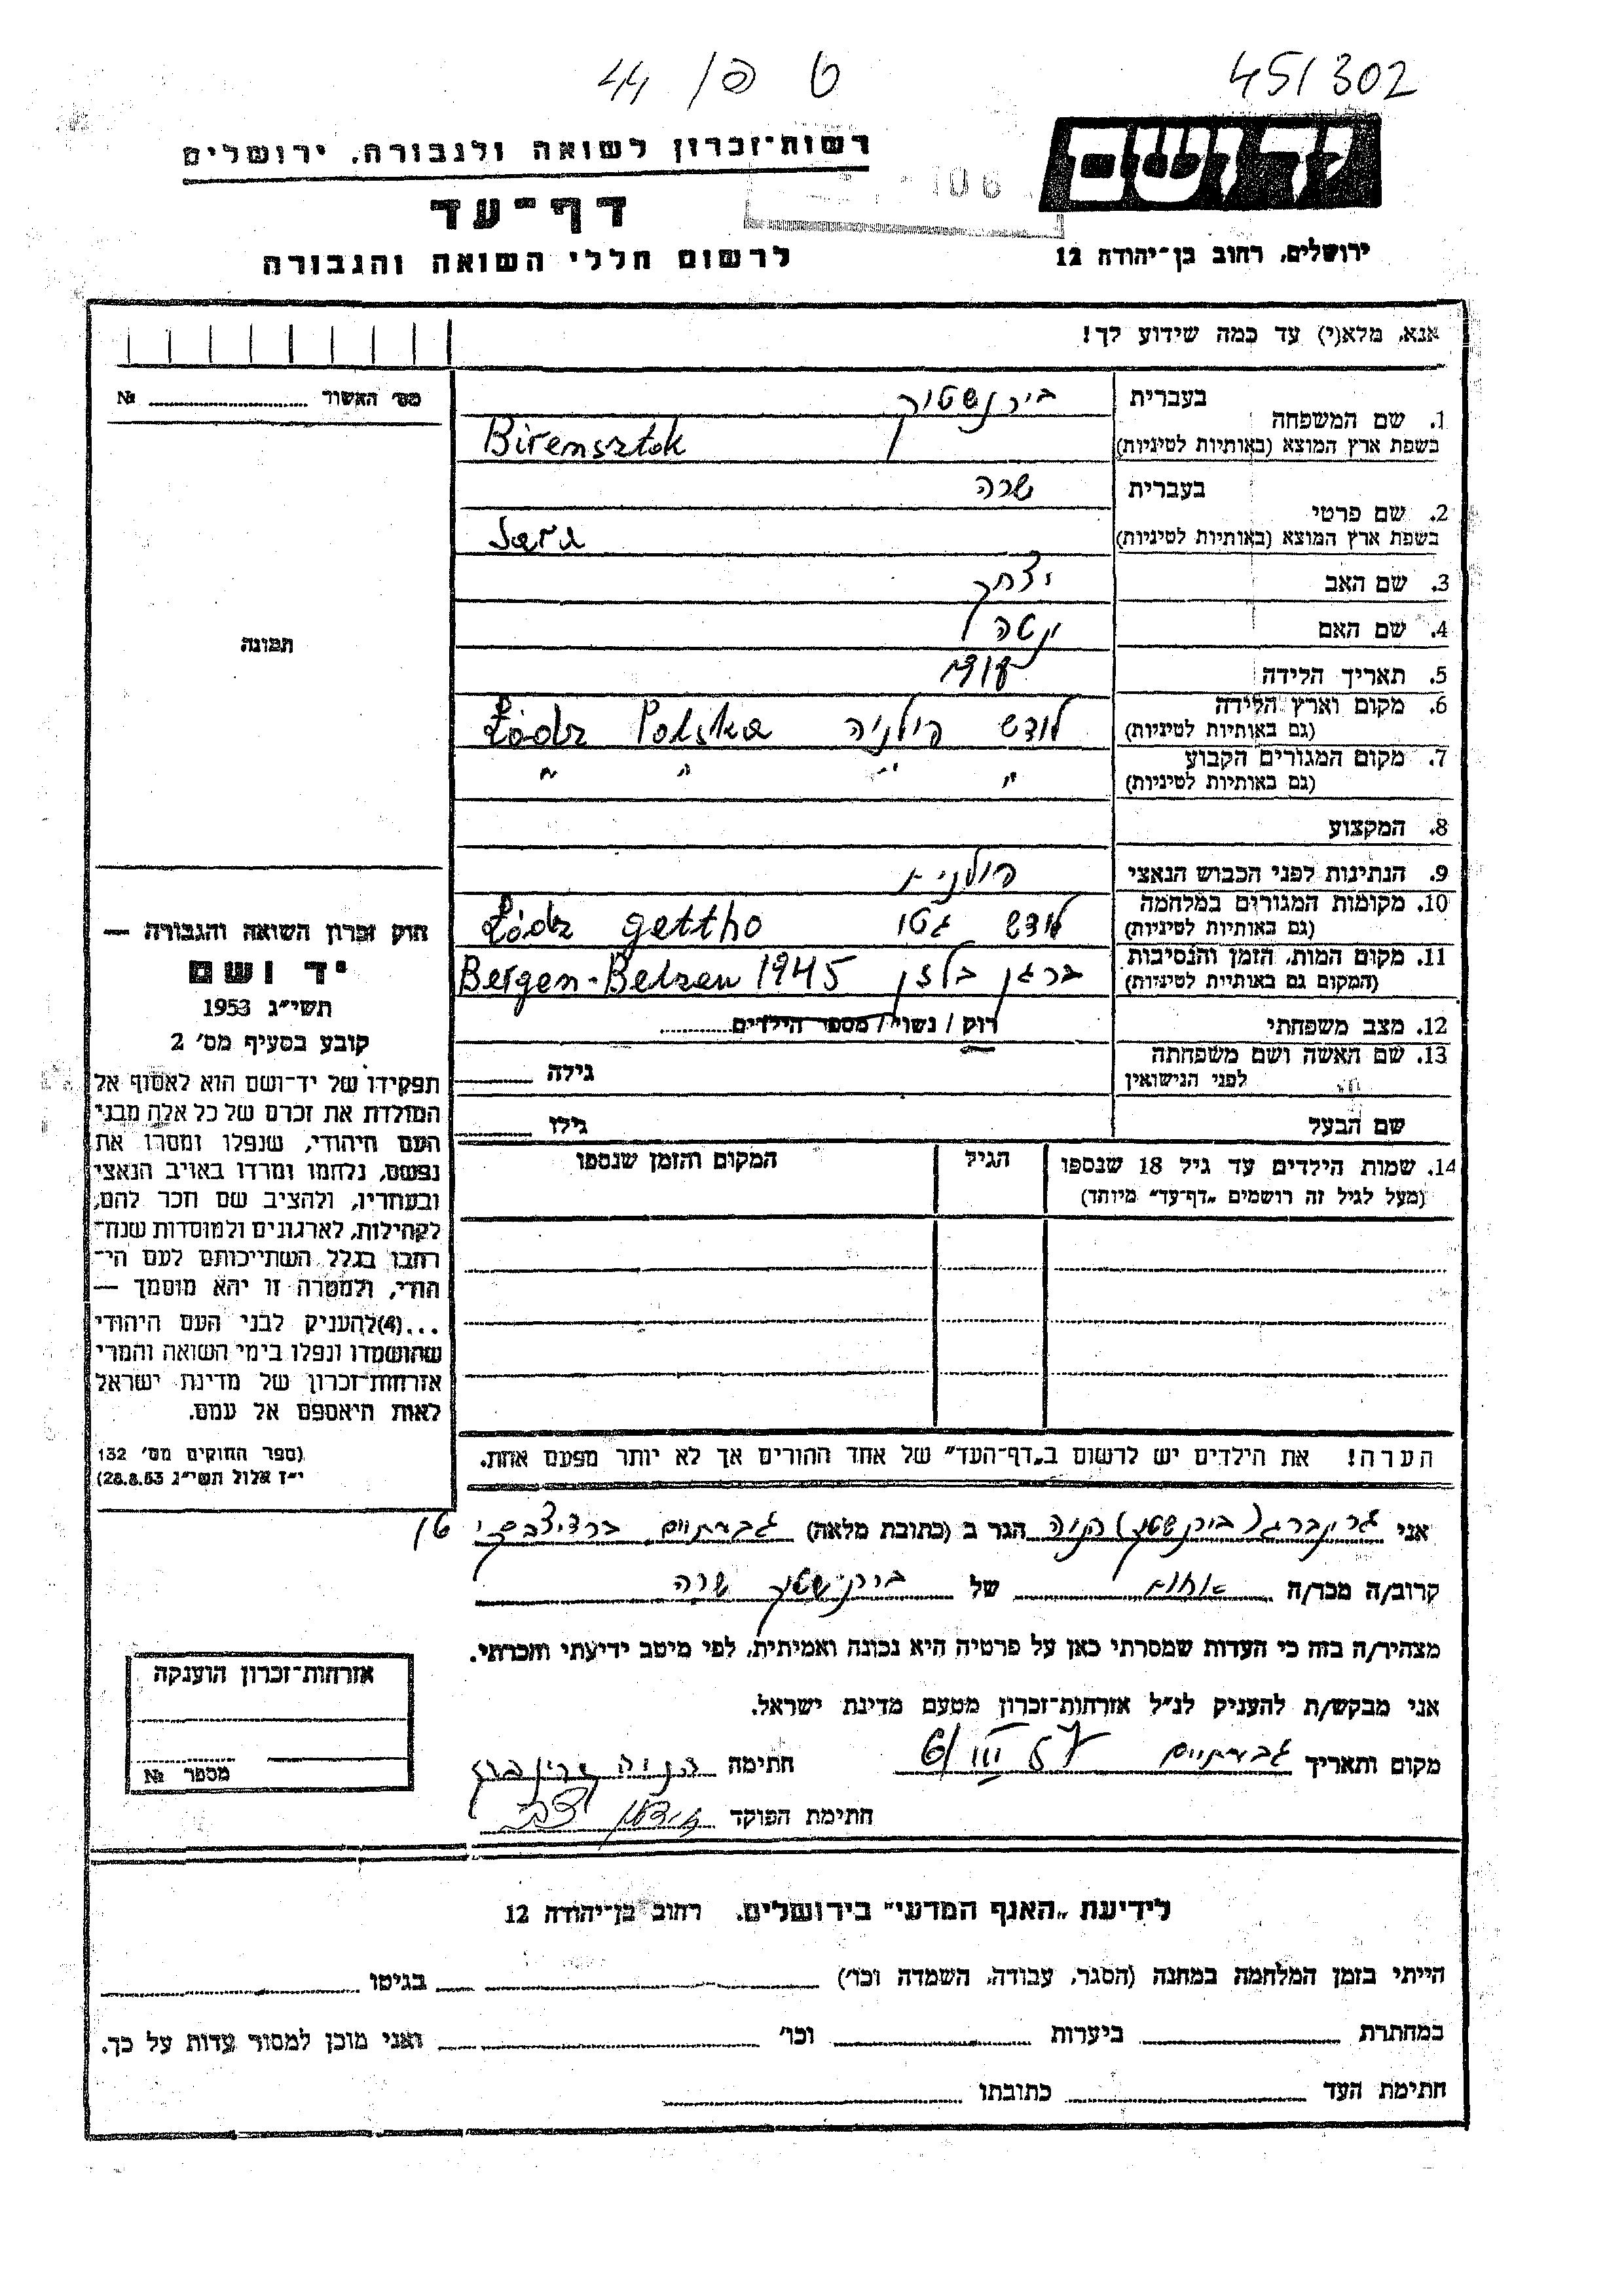 45/302
ט פ/ 44
יד ושם
רשות־זכרון לשואה ולגבורה, ירושלים
דף־עד
לרשום חללי השואה והגבורה
ירושלים, רחוב בן־יהודה 12
106
אנא, מלא(י) עד כמה שידוע לך!
1. שם המשפחה
בעברית בירנשטוק
בשפת ארץ המוצא (באותיות לטיניות) Birensztok
2. שם פרטי
בעברית שרה
בשפת ארץ המוצא (באותיות לטיניות) Sara
3. שם האב יצחק
4. שם האם יטה
5. תאריך הלידה
6. מקום וארץ הלידה
(גם באותיות לטיניות) לודש פולניה Polska Łódz
7. מקום המגורים הקבוע
(גם באותיות לטיניות) " " " "
8. המקצוע
9. הנתינות לפני הכבוש הנאצי פולנית
10. מקומות המגורים במלחמה
(גם באותיות לטיניות) לודש גטו Łódz gettho
11. מקום המות, הזמן והנסיבות
(המקום גם באותיית לטיניות) ברגן בלזן Bergen-Belzen 1945
12. מצב משפחתי רוק / נשוי / מספר הילדים
13. שם האשה ושם משפחתה
לפני הנישואין גילה
שם הבעל גילו
14. שמות הילדים עד גיל 18 שנספו הגיל המקום והזמן שנספו
(מעל לגיל זה רושמים „דף־עד" מיוחד)
הערה! את הילדים יש לרשום ב„דף־העד" של אחד ההורים אך לא יותר מפעם אחת.
מס׳ האשור №
תמונה
חוק זכרון השואה והגבורה —
יד ושם
תשי״ג 1953
קובע בסעיף מס׳ 2
תפקידו של יד־ושם הוא לאסוף אל
המולדת את זכרם של כל אלה מבני
העם היהודי, שנפלו ומסרו את
נפשם, נלחמו ומרדו באויב הנאצי
ובעוזריו, ולהציב שם וזכר להם,
לקהילות, לארגונים ולמוסדות שנח־
רבו בגלל השתייכותם לעם הי־
הודי, ולמטרה זו יהא מוסמך —
...(4)להעניק לבני העם היהודי
שהושמדו ונפלו בימי השואה והמרי
אזרחות־זכרון של מדינת ישראל
לאות היאספם אל עמם.
(ספר החוקים מס׳ 132
י״ז אלול תשי״ג 28.8.53)
אני גרינברג (בירנשטוק) חנה הגר ב (כתובת מלאה) גבעתיים ברדיצבסקי
קרוב/ה מכר/ה אחות של בירנשטוק שרה
מצהיר/ה בזה כי העדות שמסרתי כאן על פרטיה היא נכונה ואמיתית, לפי מיטב ידיעתי והכרתי.
אני מבקש/ת להעניק לנ״ל אזרחות־זכרון מטעם מדינת ישראל.
מקום ותאריך גבעתיים 6/VIII 57 חתימה חנה גרינברג
חתימת הפוקד
אזרחות־זכרון הוענקה
מספר №
לידיעת „האגף המדעי" בירושלים, רחוב בן־יהודה 12
הייתי בזמן המלחמה במחנה (הסגר, עבודה, השמדה וכו׳) בגיטו
במחתרת ביערות וכו׳ ואני מוכן למסור עדות על כך.
חתימת העד כתובתו